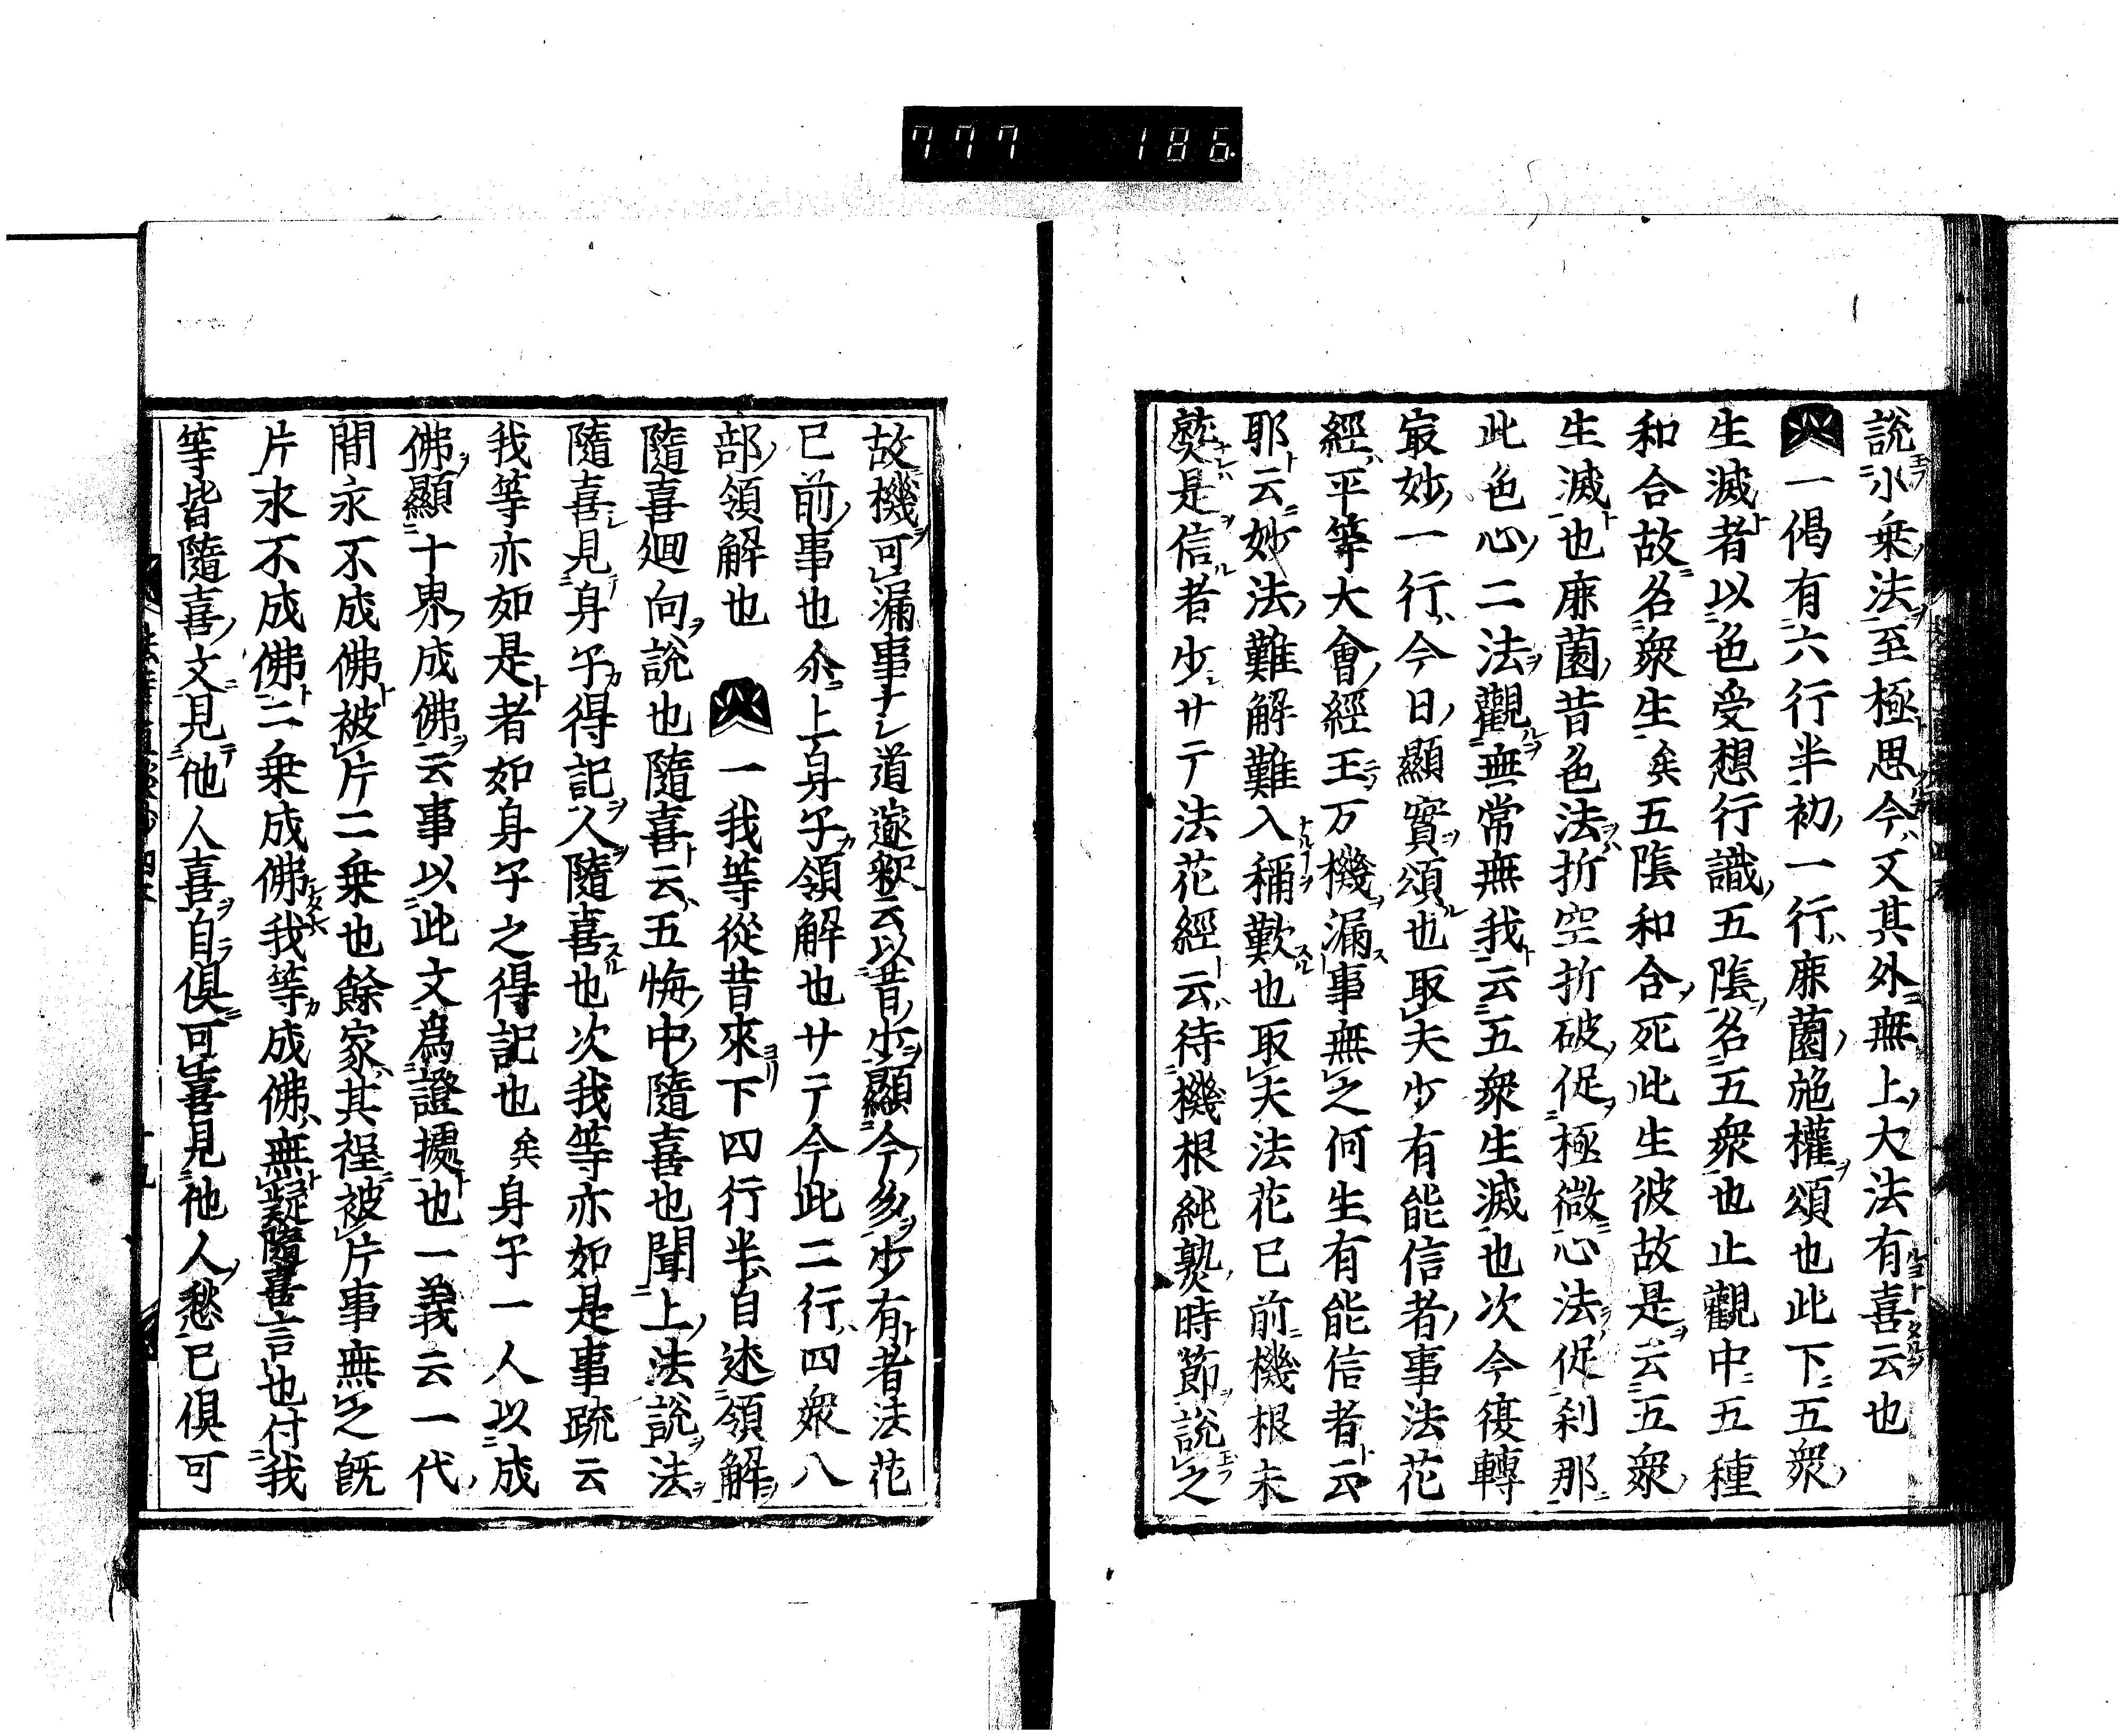 777 186
説小乗法至極思今又其外無上大法有喜云也
一偈有六行半初一行鹿薗施權頌也此下五衆
生滅者以色受想行識五陰名五衆也止觀中五種
和合故名衆生矣五陰和合死此生彼故是云五衆
生滅也鹿薗昔色法折空折破促極微心法促刹那
此色心二法觀無常無我云五衆生滅也次今復轉
最妙一行今日顯實頌也取夫少有能信者事法花
經平等大會經王万機漏事無之何生有能信者云
耶云妙法難解難入稱歎也取夫法花已前機根未
熟是信者少サテ法花經云待機根純熟時節説之
故機可漏事ナレ道邃釈云以昔少顯今多少有者法花
已前事也尒上身子領解也サテ今此二行四衆八
部領解也 一我等從昔來下四行半自述領解
隨喜廻向説也隨喜云五悔中隨喜也聞上法説法
隨喜見身子得記人隨喜也次我等亦如是事疏云
我等亦如是者如身子之得記也矣身子一人以成
佛顯十界成佛云事以此文爲證據也一義云一代
間永不成佛被片二乗也餘家其程被片事無之既
片永不成佛二乗成佛我等成佛無疑隨喜言也付我
等皆隨喜文見他人喜自倶可喜見他人愁已倶可